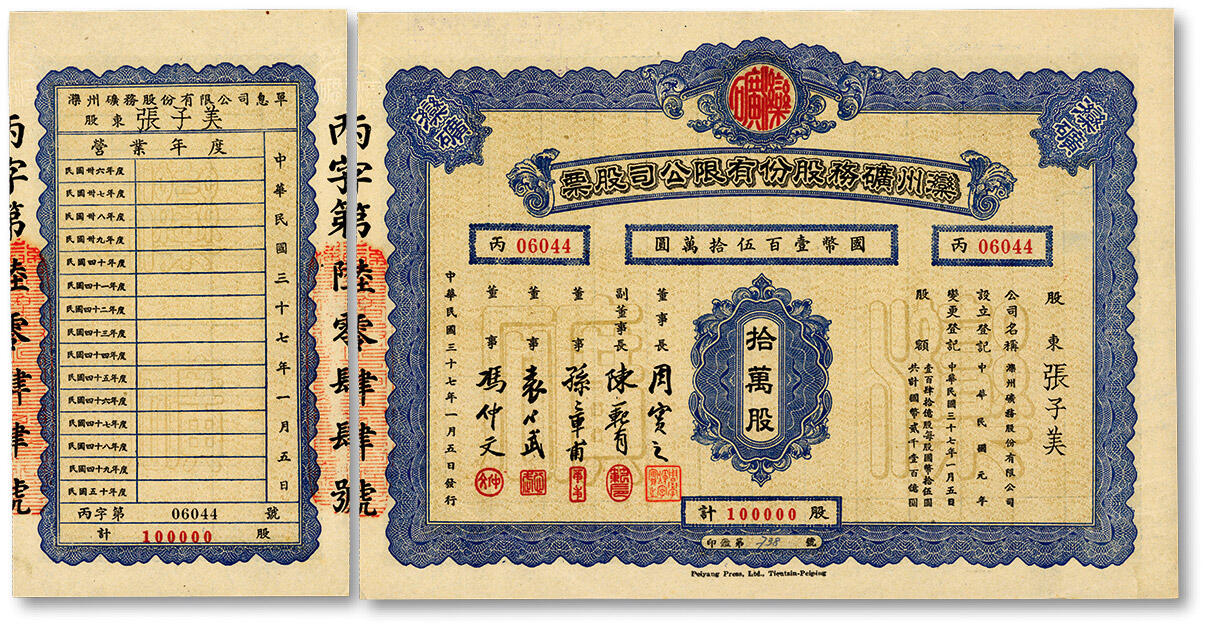 丙字第陸零肆肆號
灤州礦務股份有限公司息單
股東 張子美
營業年度
中華民國三十七年一月五日
民國卅六年度
民國卅七年度
民國卅八年度
民國卅九年度
民國四十年度
民國四十一年度
民國四十二年度
民國四十三年度
民國四十四年度
民國四十五年度
民國四十六年度
民國四十七年度
民國四十八年度
民國四十九年度
民國五十年度
丙字第 06044 號
計 100000 股
丙字第陸零肆肆號
灤礦
灤州礦務股份有限公司股票
丙 06044
國幣壹百伍拾萬圓
丙 06044
股東 張子美
公司名稱 灤州礦務股份有限公司
設立登記 中華民國元年
變更登記 中華民國三十七年一月五日
股額 壹百肆拾億股每股國幣拾伍圓
共計國幣貳千壹百億圓
拾萬股
董事長 周實之
副董事長
董事 孫章甫
董事 袁
董事 馮仲文
中華民國三十七年一月五日發行
計 100000 股
印鑑第 738 號
Peiyang Press, Ltd., Tientsin-Peiping